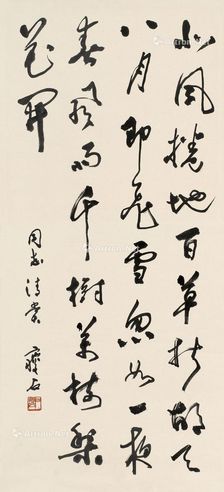 北風捲地百草折胡天
八月即飛雪忽如一夜
春風來千樹萬樹梨
花開
同志清賞